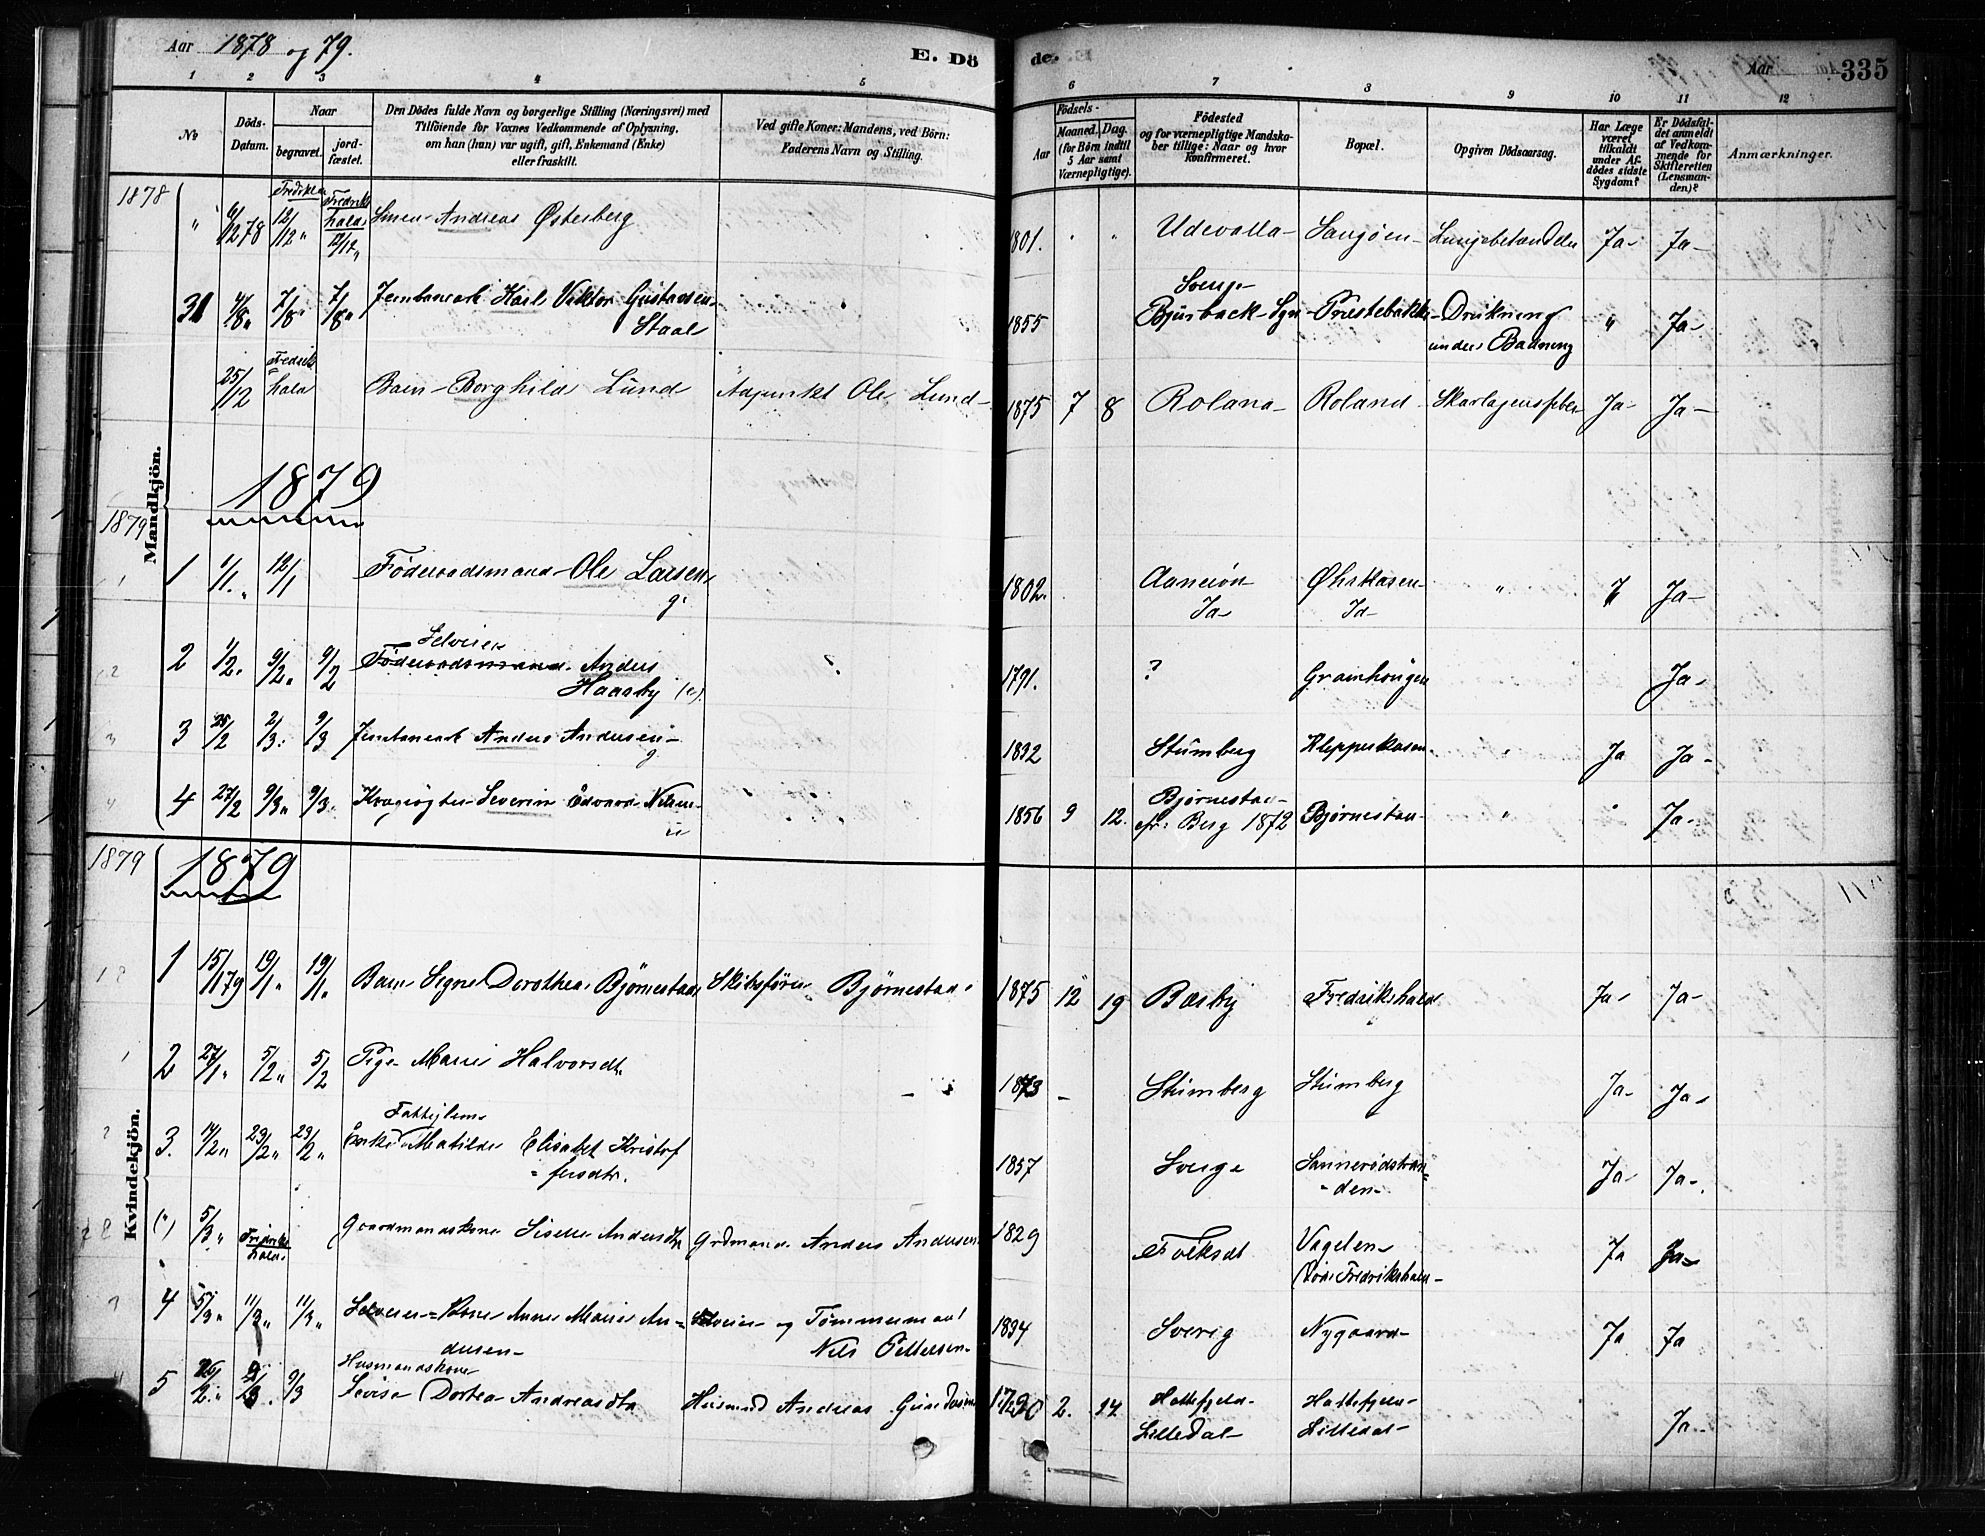 Aar 1878 og 79.
E. Dö
de.
Aar
335
1 2 3 4 5 6 7 8 9 10 11 12
No
Döds-Datum.
Naar
begravet.
jord-fæstet.
Den Dödes fulde Navn og borgerlige Stilling (Næringsvei) med
Tilföiende for Voxnes Vedkommende af Oplysning,
om han (hun) var ugift, gift, Enkemand (Enke)
eller fraskilt.
Ved gifte Koner: Mandens, ved Börn:
Faderens Navn og Stilling.
Födsels-
Aar
Maaned. Dag.
(for Börn indtil
5 Aar samt
Værnepligtige).
Födested
og for værnepligtige Mandska-
ber tillige: Naar og hvor
konfirmeret.
Bopæl.
Opgiven Dödsaarsag.
Har Læge
været
tilkaldt
under Af-
dödes sidste
Sygdom?
Er Dödsfal-
det anmeldt
af Vedkom-
mende for
Skifteretten
(Lensman-
den)?
Anmærkninger.
1878
Mandkjön.
" 6/12 78 12/12 " Fredriks hald 12/12 " Andreas Østerberg 1801. " " Udevalla Ja Ja
31 4/8 " 7/8 " 7/8 " Karl Viktor Gustavsen Staal 1855 Sverige Bjurback Sgn Præstebakke Drukning under Badning " Ja
25/12 Fredriks hald Barn Borghild Lund Adjunkt Ole Lund 1875 7 8 Roland Roland Skarlagensfeber Ja Ja
1879
1879
1 1/1. 12/1 Föderaadsmand Ole Larsen g. 1802. Id Id " Ja
2 1/2. 9/2. 9/2 Selveier Föderaadsmand Anders Haasby (e) ? 1791. ? Ja
3 25/2 2/3. 9/3 Anders Andersen g. 1832 Stumberg Klepperkasen Ja Ja
4 27/2 9/3 " 9/3. Severin Edvard Nilsen u 1856 9 12. Bjørnestad cfr: Berg 1872 Bjørnestad " Ja
1879
1879
Kvindekjön.
1 15/1 79 19/1 " 19/1 " Barn Signe Dorothea Bjørnestad Skibsfører Bjørnestad 1875 12 19 Bæsby Fredrikshald Ja Ja
2 27/1 " 5/2 " 5/2 Pige Marie Halvorsdt. 1873 Stumberg Stumberg Ja Ja
3. 14/2 " 23/2 " 23/2 " Fattiglem Enke Matilde Elisabet Kristof = fersdtr. 1857 Sverige Sannerødstran= =den Ja Ja
(") 5/3 " Fredriks hald. Gaardmandskone Andersdtr Grdmand Anders Andersen 1829 Vagelen (Død Fredrikshald Ja Ja
4 5/3 " 11/3 " 11/3 " Selveier = Kone Anne Marie An= dersen Selveier og Tømmermand Nils Pettersen 1834 Sverig Nygaard Ja Ja
5 26/2. 9/3 Husmandskone Dortea Andreasdtr Husmand Andreas 2. 24 Hattefjeld Lilledal Hattefjeld Lilledal Ja